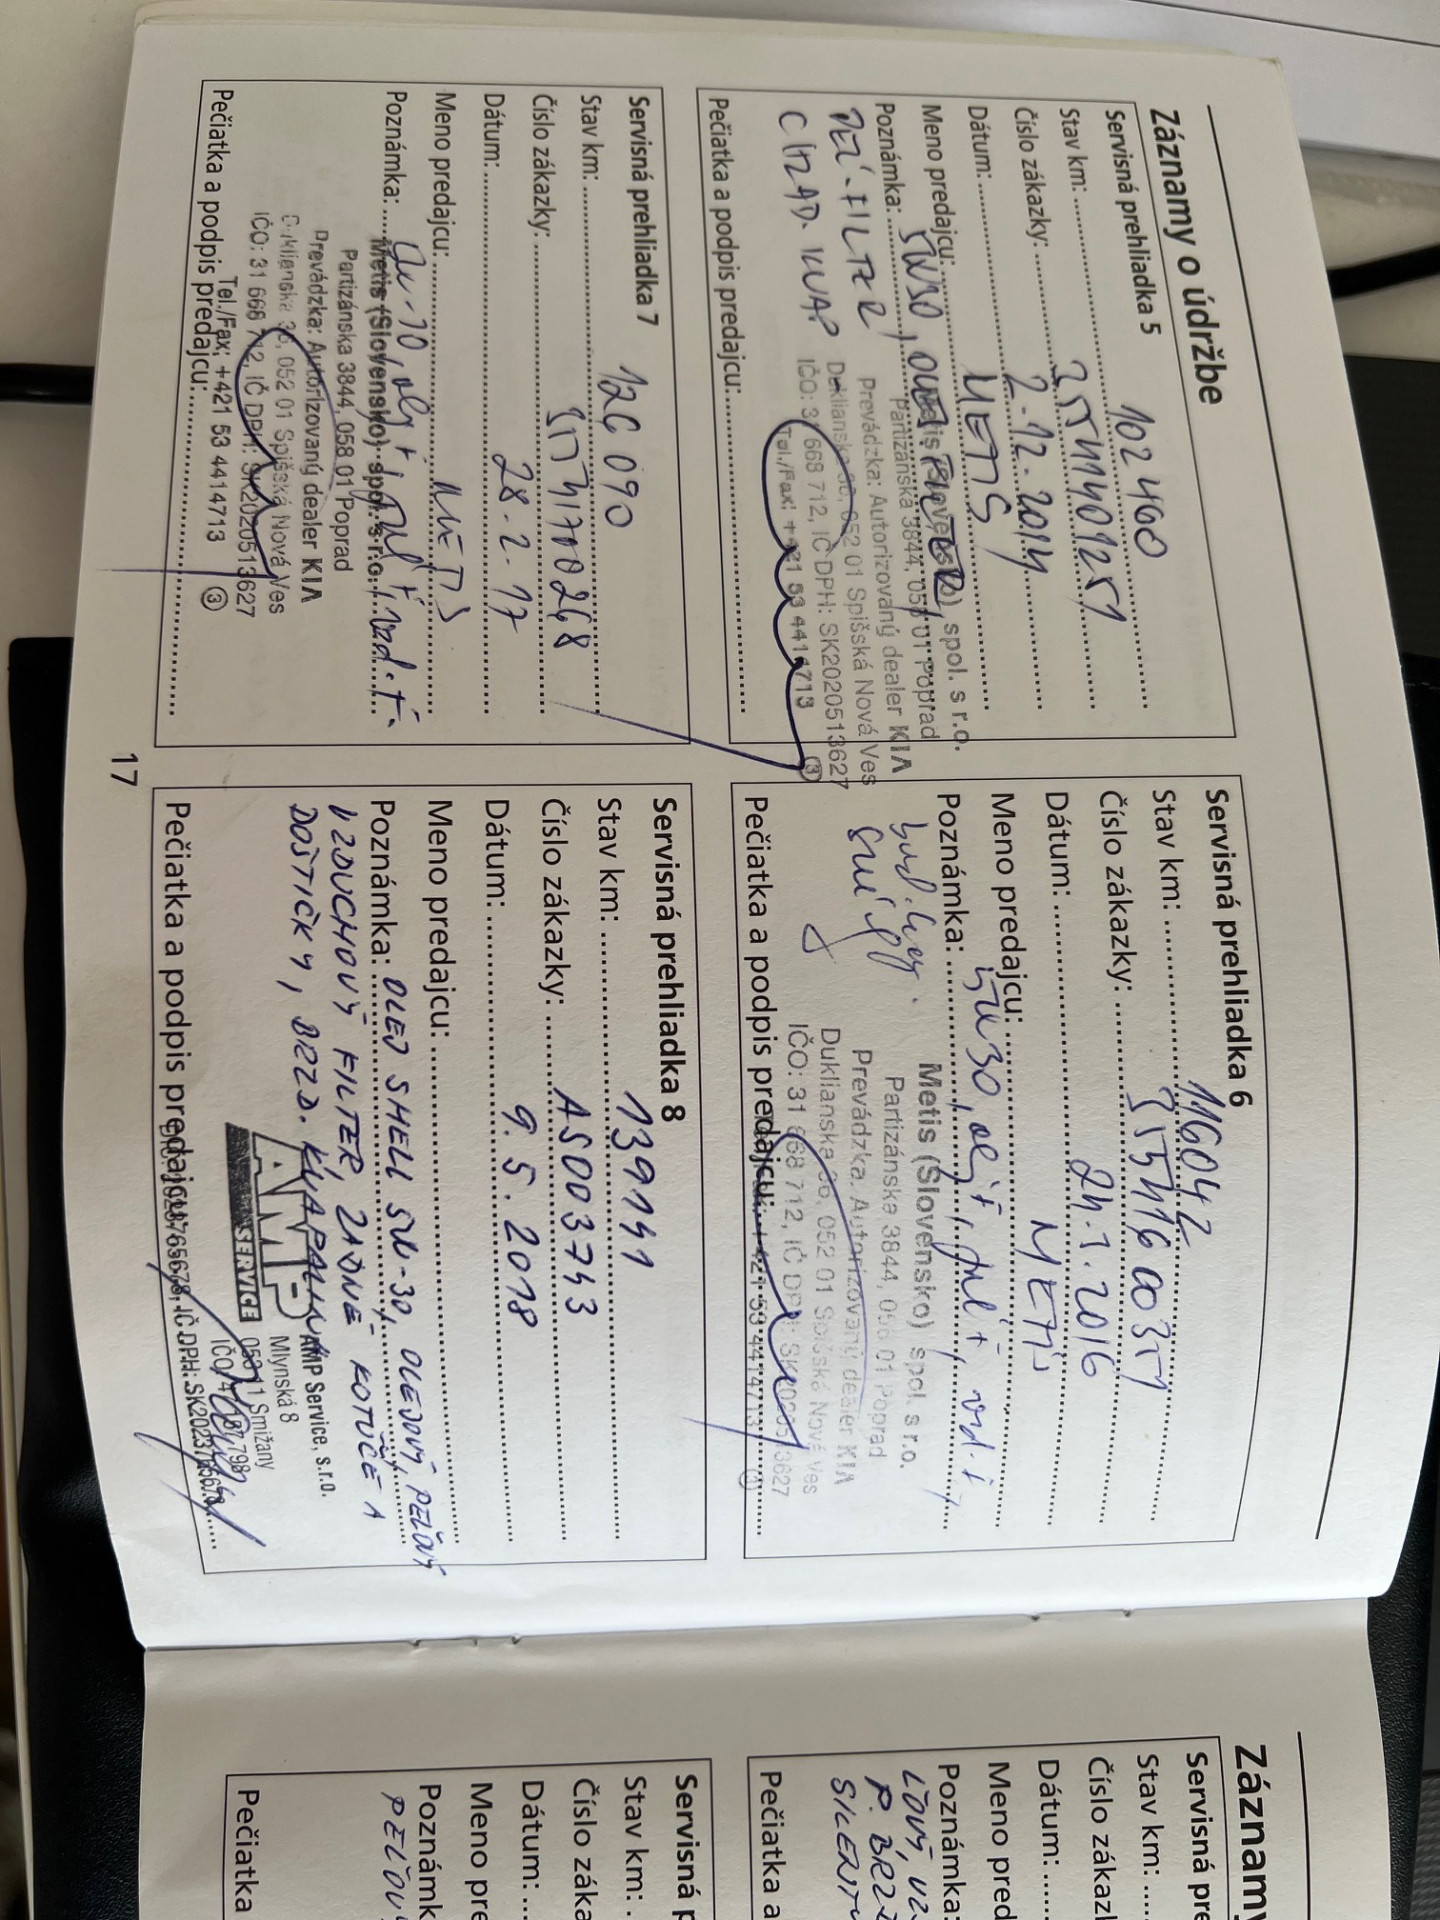 Záznamy o údržbe
Servisná prehliadka 5
Stav km: 102 460
Číslo zákazky: 35541401251
Dátum: 2.12.2014
Meno predajcu: METIS
Poznámka: 5W30, OLEJ. FILTER,
PEĽ. FILTER
CHLAD. KVAP.
Metis (Slovensko) spol. s r.o.
Partizánska 3844, 058 01 Poprad
Prevádzka: Autorizovaný dealer KIA
Duklianska 36, 052 01 Spišská Nová Ves
IČO: 31 668 712, IČ DPH: SK2020513627
Tel./Fax: +421 53 4414713
3
Pečiatka a podpis predajcu:
Servisná prehliadka 6
Stav km: 116042
Číslo zákazky:
Dátum: 2016
Meno predajcu: METIS
Poznámka: 5W30, olej +
Metis (Slovensko) spol. s r.o.
Partizánska 3844, 058 01 Poprad
Prevádzka: Autorizovaný dealer KIA
Duklianska 36, 052 01 Spišská Nová Ves
IČO: 31 668 712, IČ DPH: SK2020513627
+421 53 4414713
Pečiatka a podpis predajcu:
Servisná prehliadka 7
Stav km: 126 090
Číslo zákazky:
Dátum: 28.2.17
Meno predajcu: METIS
Poznámka:
Metis (Slovensko) spol. s r.o.
Partizánska 3844, 058 01 Poprad
Prevádzka: Autorizovaný dealer KIA
Duklianska 36, 052 01 Spišská Nová Ves
IČO: 31 668 712, IČ DPH: SK2020513627
Tel./Fax: +421 53 4414713
3
Pečiatka a podpis predajcu:
Servisná prehliadka 8
Stav km: 139141
Číslo zákazky: AS003743
Dátum: 9.5.2018
Meno predajcu:
Poznámka: OLEJ SHELL 5W-30, OLEJOVÝ, PEĽOVÝ,
VZDUCHOVÝ FILTER, ZADNÉ KOTÚČE A
DOŠTIČKY, BRZD. KVAPALINA
AMP SERVICE
AMP Service, s.r.o.
Mlynská 8
053 11 Smižany
Pečiatka a podpis predajcu:
17
Záznamy
Servisná pre
Stav km:
Číslo zákazk
Dátum:
Meno pred
Poznámka:
Pečiatka a
Servisná p
Stav km:
Číslo záka
Dátum:
Meno pre
Poznámk
PEĽOV
Pečiatka